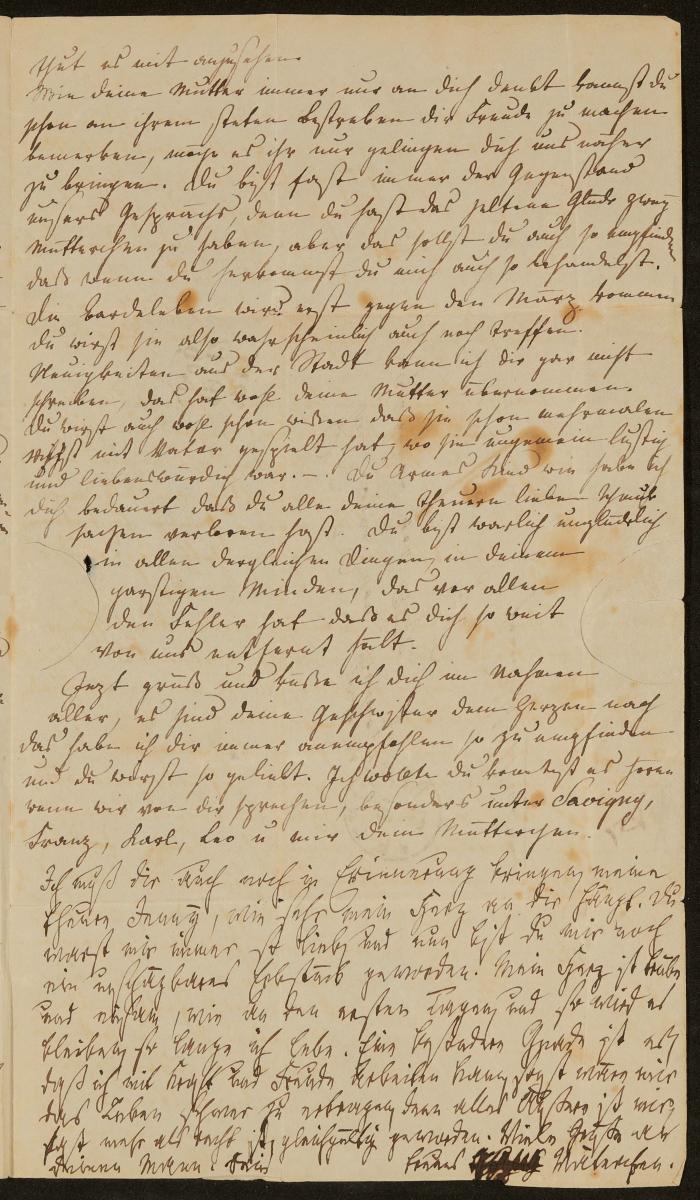 thut es mit anzusehen.
Wie deine Mutter immer nur an dich denkt kannst du
schon an ihrem steten Bestreben dir Freude zu machen
bemerken, möge es ihr nur gelingen dich uns näher
zu bringen. Du bist fast immer der Gegenstand
unsers Gesprächs, denn du hast das seltene Glück zwey
Mütterchen zu haben, aber das sollst du auch so empfinden
daß wenn du herkommst du mich auch so behandelst.
Die Bardeleben wird erst gegen den März kommen
du wirst sie also wahrscheinlich auch noch treffen.
Neuigkeiten aus der Stadt kann ich dir gar nicht
schreiben, das hat wohl deine Mutter übernommen.
Du wirst auch wohl schon wissen daß sie schon mehrmalen
Whist mit Vater gespielt hat, wo sie ungemein lustig
und liebenswürdig war. – . Du Armes Kind wie habe ich
dich bedauert daß du alle deine theuern lieben Schmuck
sachen verloren hast. Du bist warlich unglücklich
in allen dergleichen Dingen, in deinem
garstigen Minden, das vor allen
den Fehler hat daß es dich so weit
von uns entfernt hält.
Jezt grüß und küsse ich dich im Nahmen
aller, es sind deine Geschwister dem Herzen nach
das habe ich dir immer anempfohlen so zu empfinden
und du warst so geliebt. Ich wollte du könntest es hören
wenn wir von dir sprechen, besonders unter Savigny,
Franz, Karl, Leo u mir dein Mütterchen.
Ich muß dir auch noch in Erinnerung bringen, meine
theure Jenny, wie sehr mein Herz an dir hängt. Du
warst mir immer so lieb, und nun bist du mir noch
ein unschäzbares Erbstück geworden. Mein Herz ist trübe
und einsam, wie in den ersten Tagen, und so wird es
bleiben so lange ich lebe. Eine besondere Gnade ist es,
daß ich mit Kraft und Freude arbeiten kann, sonst wäre mir
das Leben schwer zu ertragen, denn alles Äußere ist mir,
fast mehr als recht ist, gleichgültig geworden. Viele Grüße an
deinen Mann. Dein treues Väterchen.